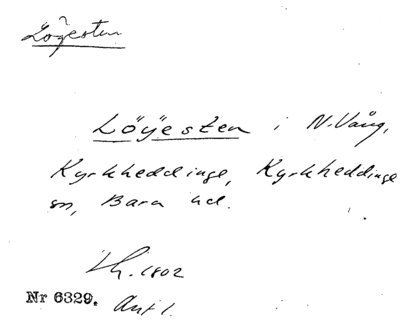 Löyesten
Löÿesten i N. Vång,
Kyrkheddinge, Kyrkheddinge
sn, Bara hd.
Lh. 1802
Nr 6329. Akt 1.